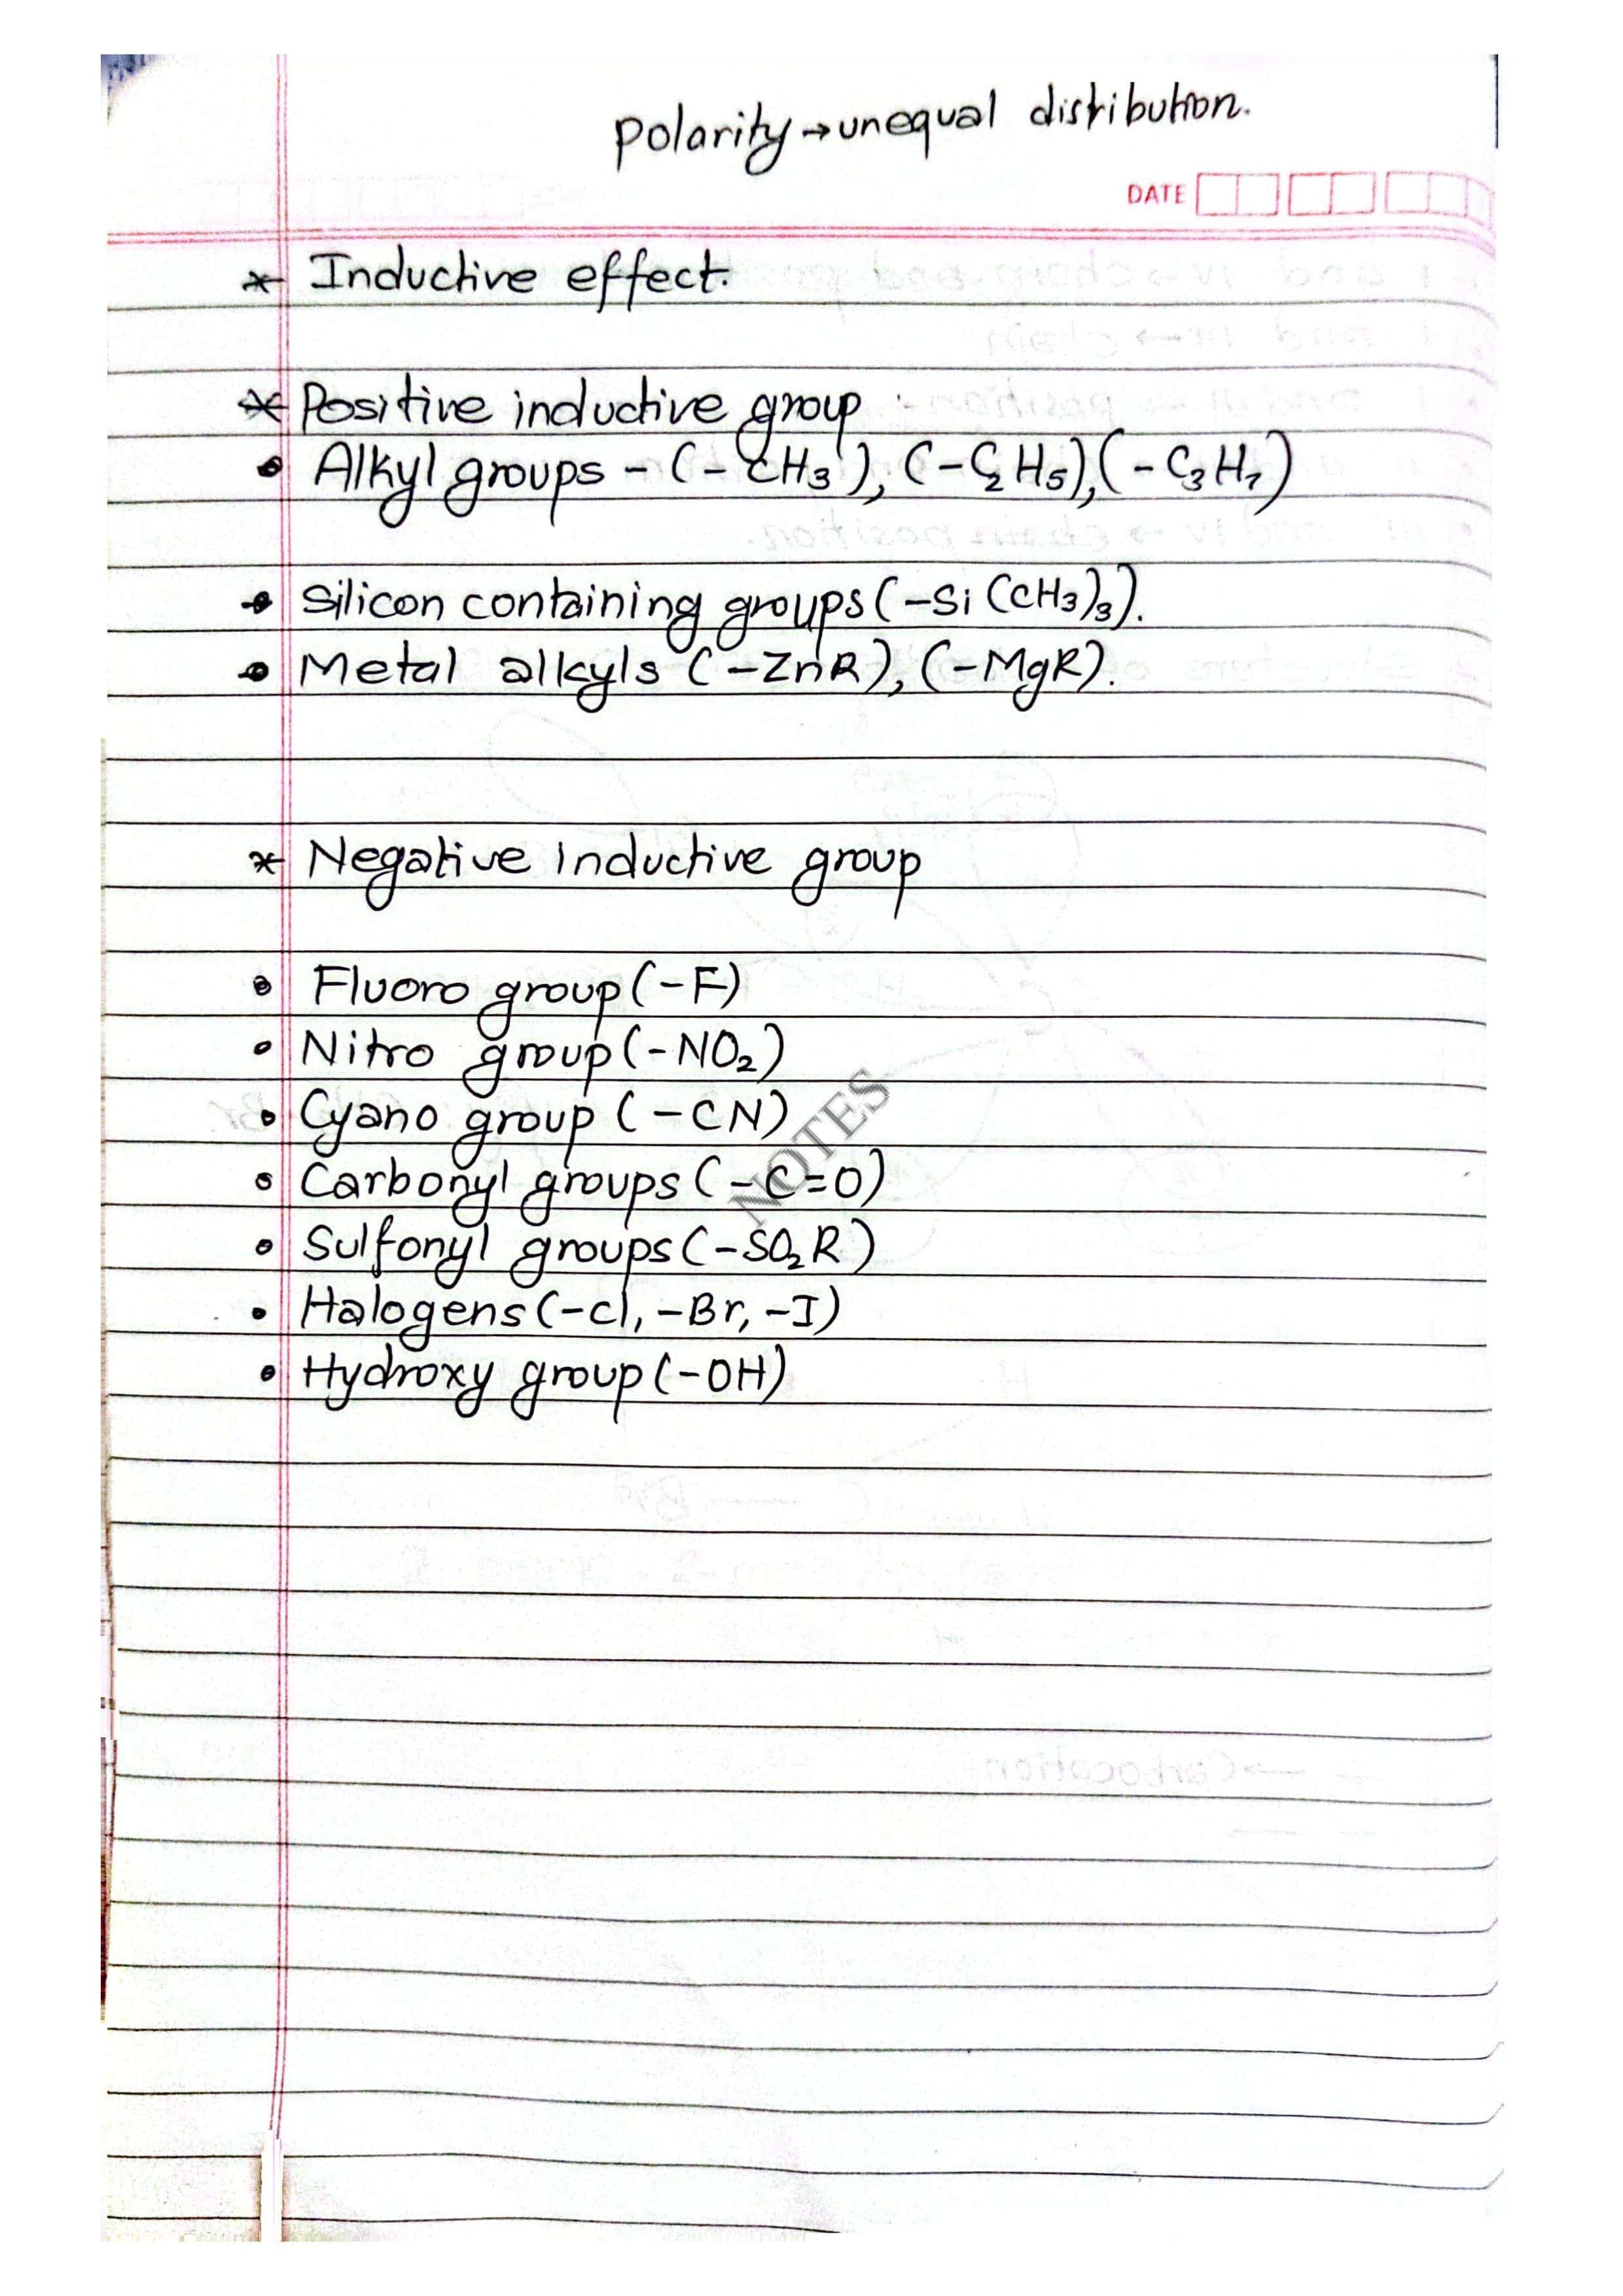 Polarity → unequal distribution.
DATE
* Inductive effect.
* Positive inductive group
• Alkyl groups - (-CH₃), (-C₂H₅), (-C₃H₇)
• Silicon containing groups (-Si(CH₃)₃).
• Metal alkyls (-ZnR), (-MgR).
* Negative inductive group
• Fluoro group (-F)
• Nitro group (-NO₂)
• Cyano group (-CN)
• Carbonyl groups (-C=O)
• Sulfonyl groups (-SO₂R)
• Halogens (-Cl, -Br, -I)
• Hydroxy group (-OH)
NOTES